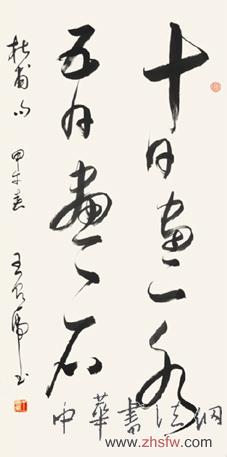 十日畫一水
五日畫一石
杜甫句 甲午春 王
中華書法網
www.zhsfw.com